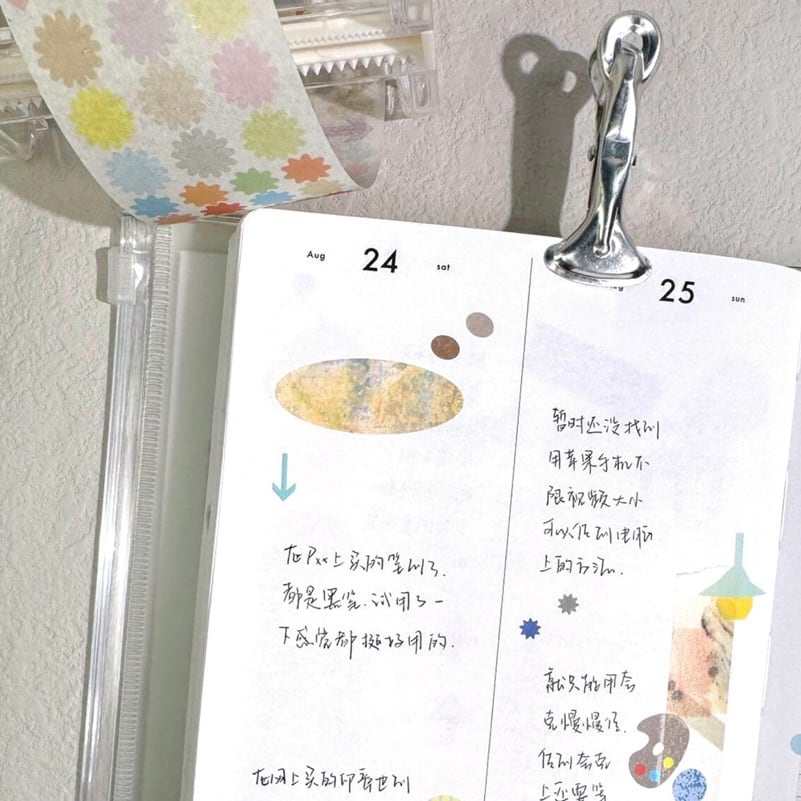 Aug 24 sat
在Pxx上买的笔到了.
都是黑笔.试用了一
下感觉都挺好用的.
在网上买的印章也到
25 sun
暂时还没找到
用苹果手机不
限视频大小
可以传到电脑
上的方法.
就只能用夸
克慢慢传.
传到夸克
上还要等